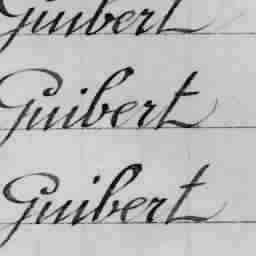 Guibert
Guibert
Guibert